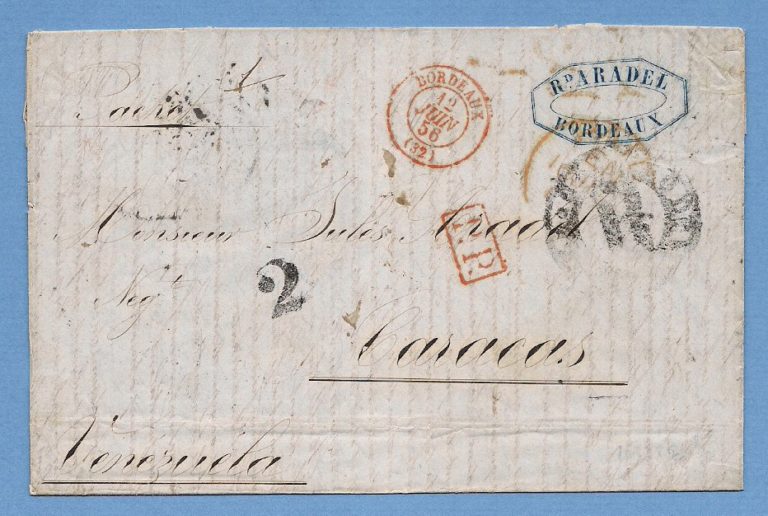 BORDEAUX
12
JUIN
56
(32)
RD. ARADEL
BORDEAUX
Monsieur Jules Aradel
P.P.
Negt
2
Caracas
Venézuela